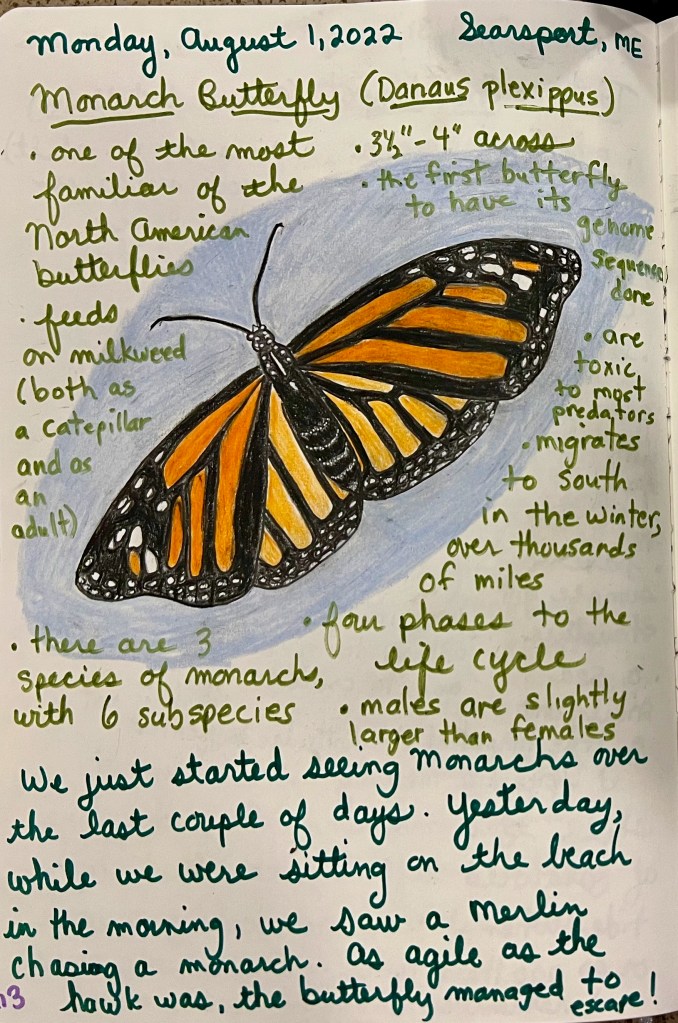 Monday, August 1, 2022 Searsport, ME
Monarch Butterfly (Danaus plexippus)
• one of the most
familiar of the
North American
butterflies
• feeds
on milkweed
(both as
a catepillar
and as
an
adult)
• there are 3
species of monarchs,
with 6 subspecies
• 3½"-4" across
• the first butterfly
to have its
genome
sequence
done
• are
toxic
to most
predators
• migrates
to south
in the winter,
over thousands
of miles
• four phases to the
life cycle
• males are slightly
larger than females
We just started seeing Monarchs over
the last couple of days. Yesterday,
while we were sitting on the beach
in the morning, we saw a Merlin
chasing a monarch. As agile as the
hawk was, the butterfly managed to
escape!